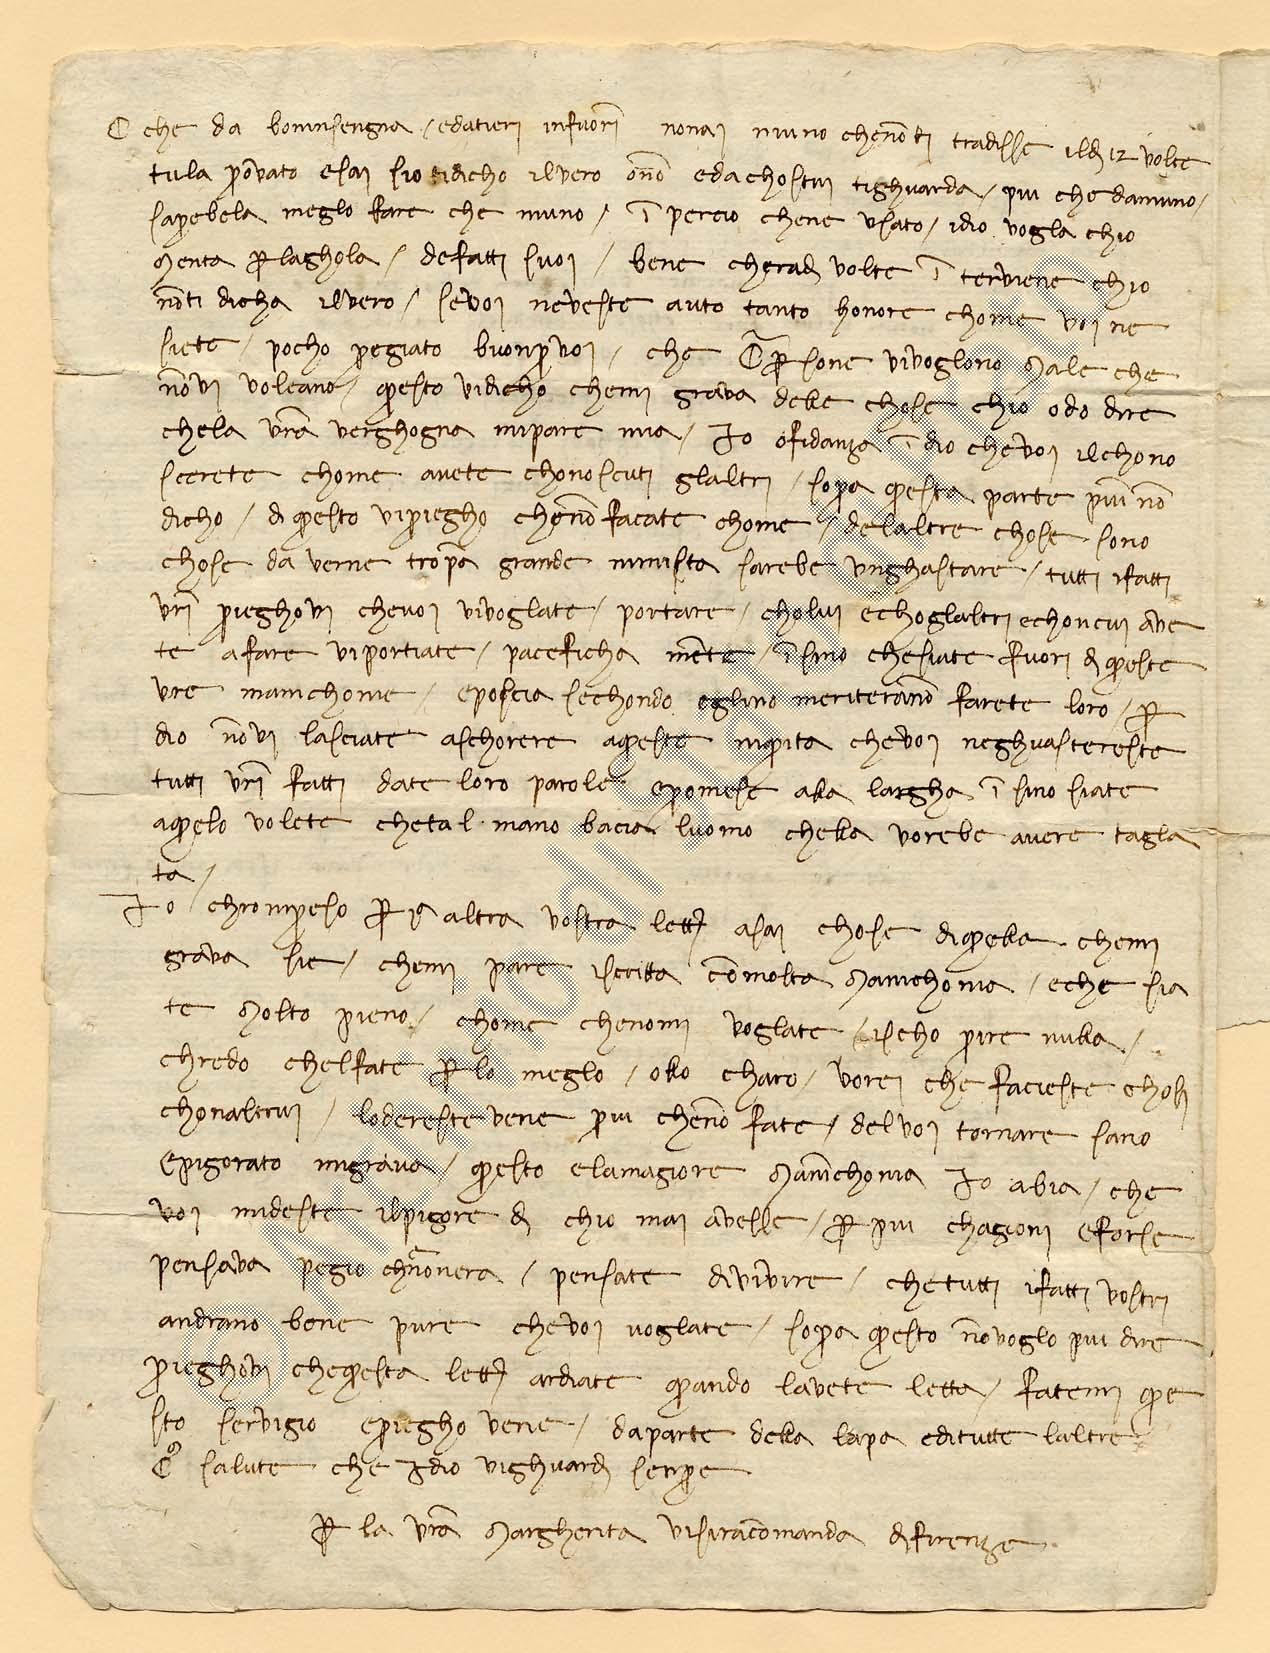 che da boninsengna / edatieri infuori nonai niuno chenōti tradisse il dì 12 volte
tula provato esai sio tidicho ilvero ōnō edachostui tighuarda / piu che daniuno /
saprebela meglo fare che niuno / īpercio chene usato / idio vogla chio
menta p laghola / defatti suoi / bene cherade volte īterviene chio
nōti dicha ilvero / sevoi neveste auto tanto honore chome voi ne
siete / pocho pregiato buonpvoi / che psone vivoglono male che
nōvi voleano / questo vidicho chemi grava delle chose chio odo dire
chela vrā verghogna mipare mia / Io ofidanza īdio chevoi ilchono
scerete chome avete chonosciuti glaltri / sopra questa parte piu nō
dicho / di questo vipriegho chenō facate chome / delaltre chose sono
chose da verne tropa grande nimista sarebe unghastare / tutti ifatti
vrī prieghovi chevoi vivoglate / portare / cholui echoglaltri echoncui ave
te afare viportiate / paceficha mēte / īsino chesiate fuori di queste
vre maninchonie / eposcia sechondo eglino meriterānō farete loro / p
dio nōvi lasciate aschorere aqueste niquita chevoi neghuastereste
tutti vrī fatti date loro parole epromese alla largha īsino siate
aquelo volete chetal mano bacia luomo chella vorebe avere tagla
ta /
Io chompreso p 1ª altra vostra lettª asai chose diquella chemi
grava sie / chemi pare iscritta cōmolta maninchonia / eche sia
te molto pieno / chome chenomi voglate / ischoprire nulla /
chredo chelfate plo meglo / ollo charo / vorei che facieste chosi
chonaltrui / lodereste vene piu chenō fate / delvoi tornare sano
epigorato migrava / questo elamagiore manīchonia Io abia / che
voi mideste ilpigore di chio mai avesse / p piu chagioni eforse
pensava pegio chenōnera / pensate divivire / chetutti ifatti vostri
andrano bene pure chevoi voglate / sopra questo nōvoglo piu dire
prieghovi chequesta lettª ardiate quando lavete letta / fatemi que
sto servigio epriegho vene / daparte della lapa editutte laltre
salute che Idio vighuardi senpre
p la vrā Margherita visiracomanda di firenze